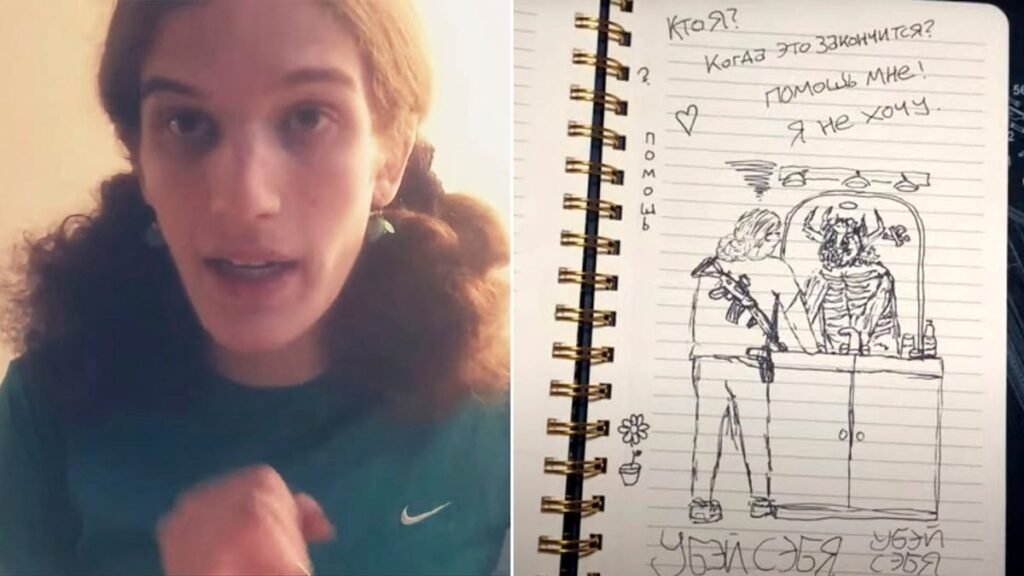 Кто я?
Когда это закончится?
помошь мне!
я не хочу.
?
помошь
Убэй сэбя
Убэй
сэбя